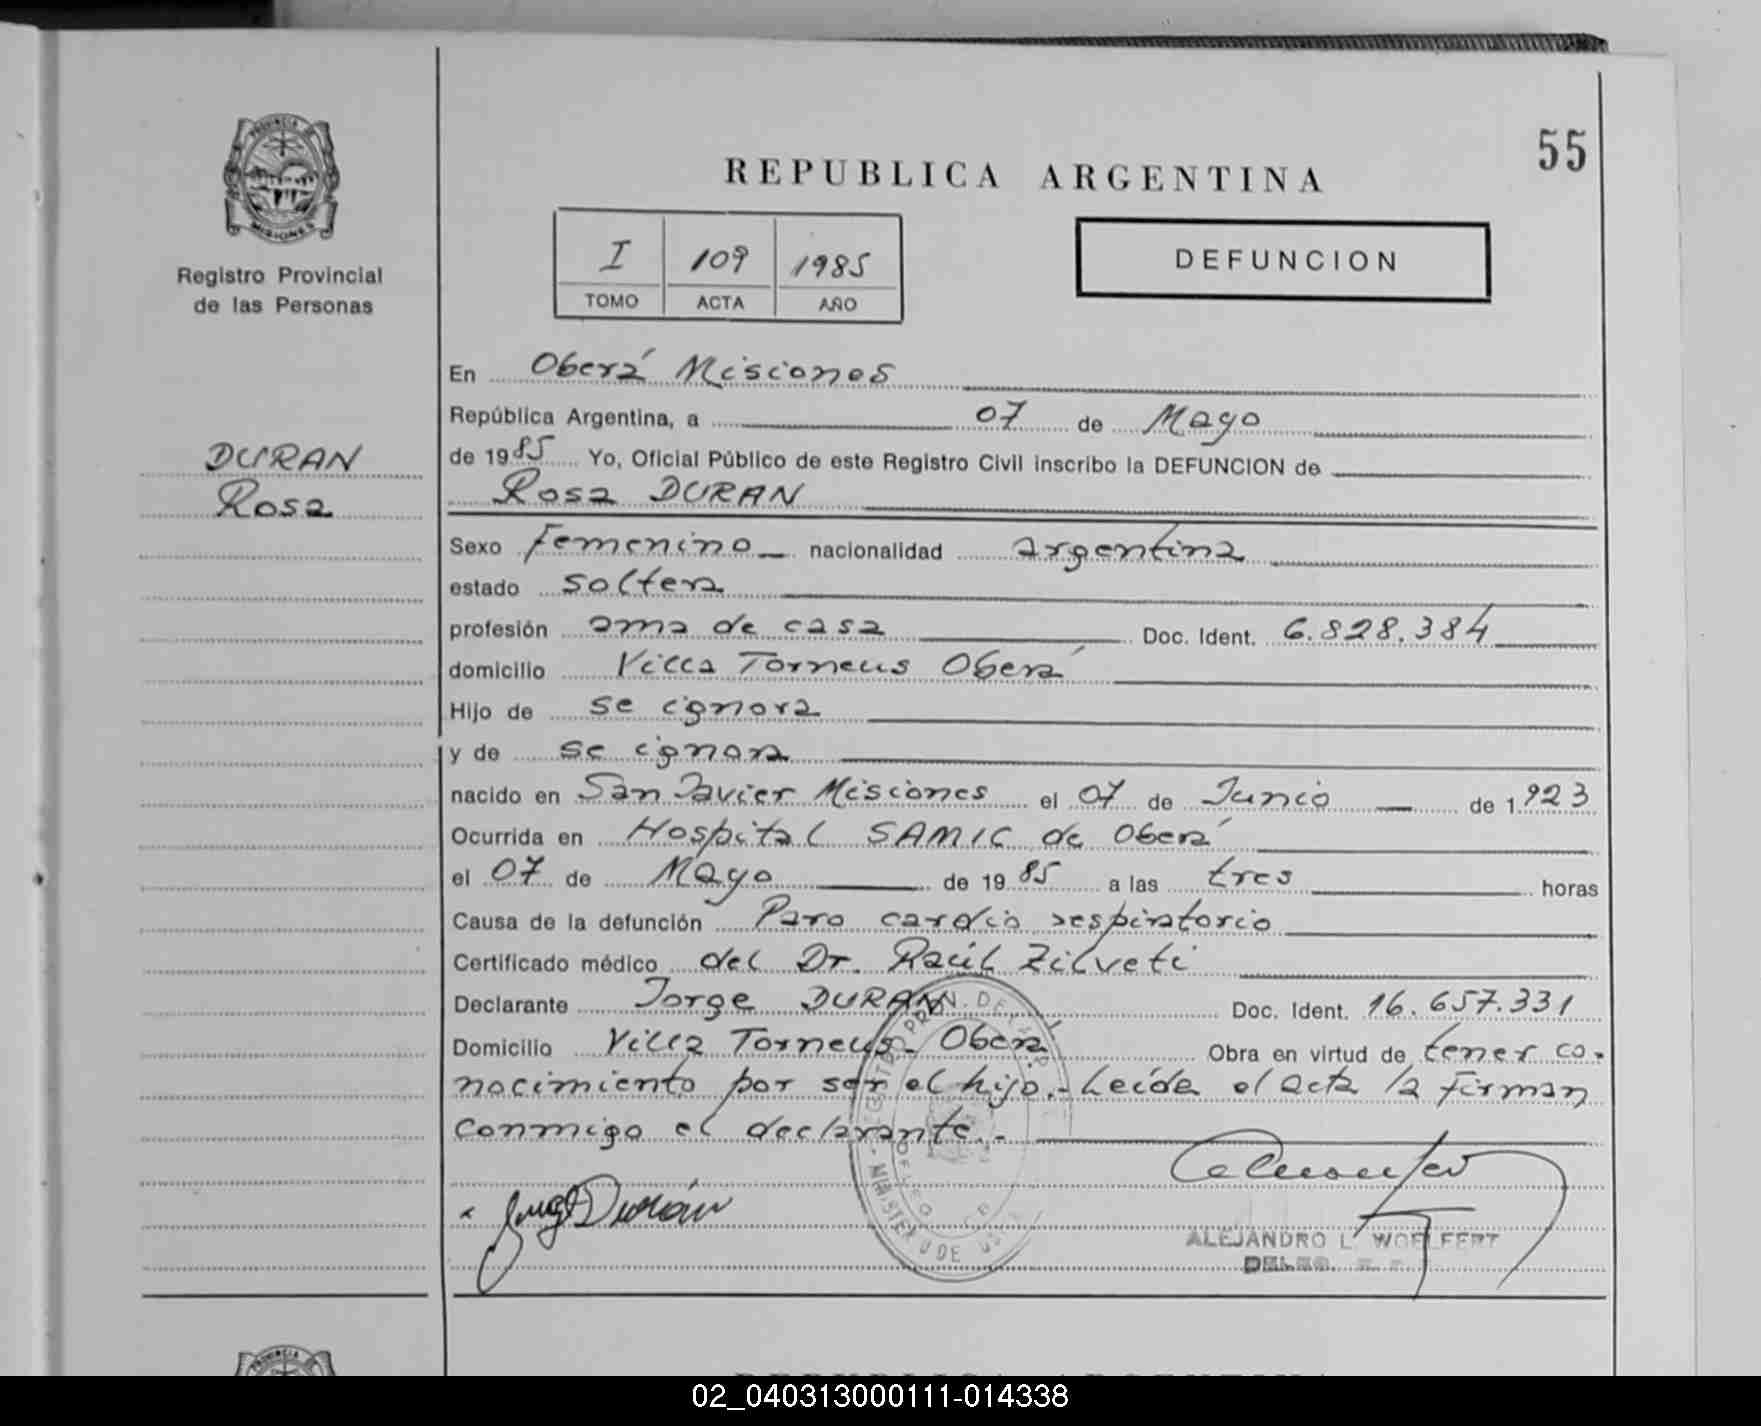 55
REPUBLICA ARGENTINA
PROVINCIA DE
MISIONES
Registro Provincial
de las Personas
I 109 1985
TOMO ACTA AÑO
DEFUNCION
DURAN
Rosa
En Oberá Misiones
República Argentina, a 07 de Mayo
de 1985 Yo, Oficial Público de este Registro Civil inscribo la DEFUNCION de
Rosa DURAN
Sexo Femenino nacionalidad argentina
estado soltera
profesión ama de casa Doc. Ident. 6.828.384
domicilio Villa Torneus Oberá
Hijo de se ignora
y de se ignora
nacido en San Javier Misiones el 07 de Junio de 1.923
Ocurrida en Hospital SAMIC de Oberá
el 07 de Mayo de 1985 a las tres horas
Causa de la defunción Paro cardio respiratorio
Certificado médico del Dr. Raúl Zilveti
Declarante Jorge DURAN Doc. Ident. 16.657.331
Domicilio Villa Torneus- Oberá Obra en virtud de tener co-
nocimiento por ser el hijo.- Leída el acta la firman
conmigo el declarante.-
Durán
ALEJANDRO L. WOELFERT
DELEG.
PROVINCIA DE
02_040313000111-014338